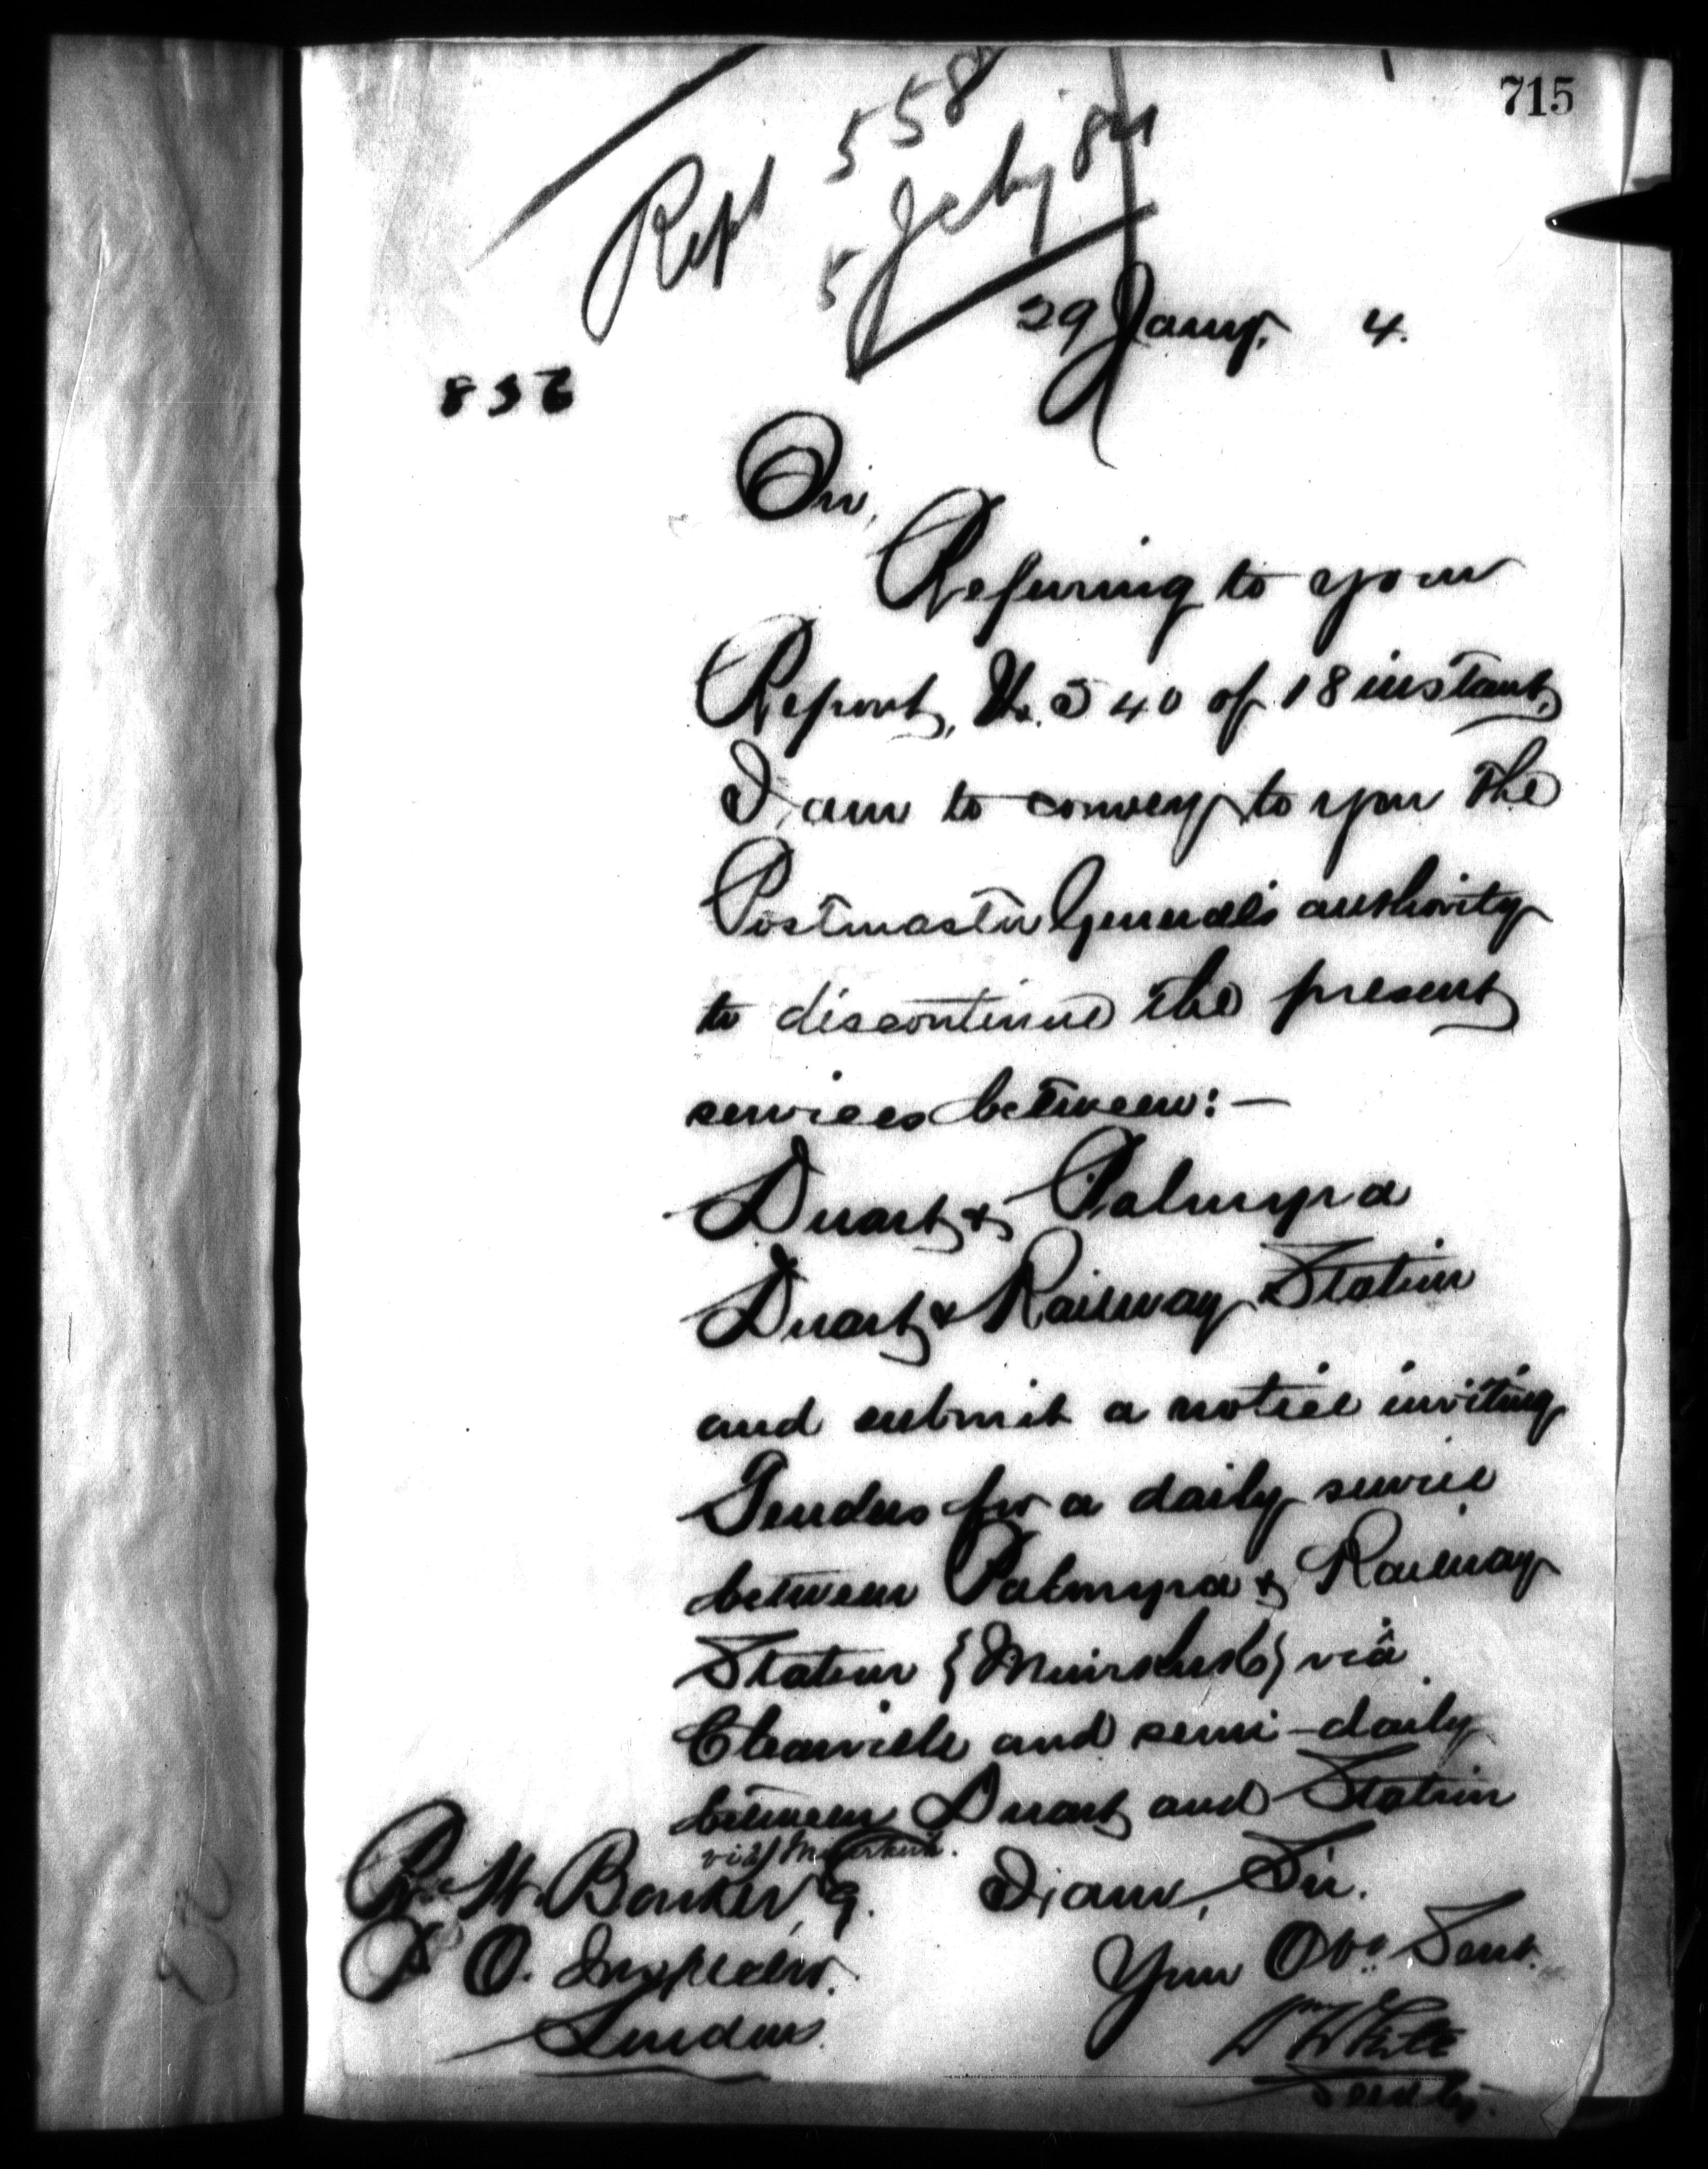 715
558
Rept 5 Feby 84
29 Jany. 4.
836
Sir,
Referring to your
Report, No. 540 of 18 instant,
I am to convey to you the
Postmaster General's authority
to discontinue the present
services between:—
Duart & Palmyra
Duart & Railway Station
and submit a notice inviting
Tenders for a daily service
between Palmyra & Railway
Station {Muirkirk} via
Clearville and semi-daily
between Duart and Station
via Muirkirk.
R. W. Barker, Esq. I am, Sir.
P. O. Inspector. Your Obt. Servt.
London. Wm White
Secrety.